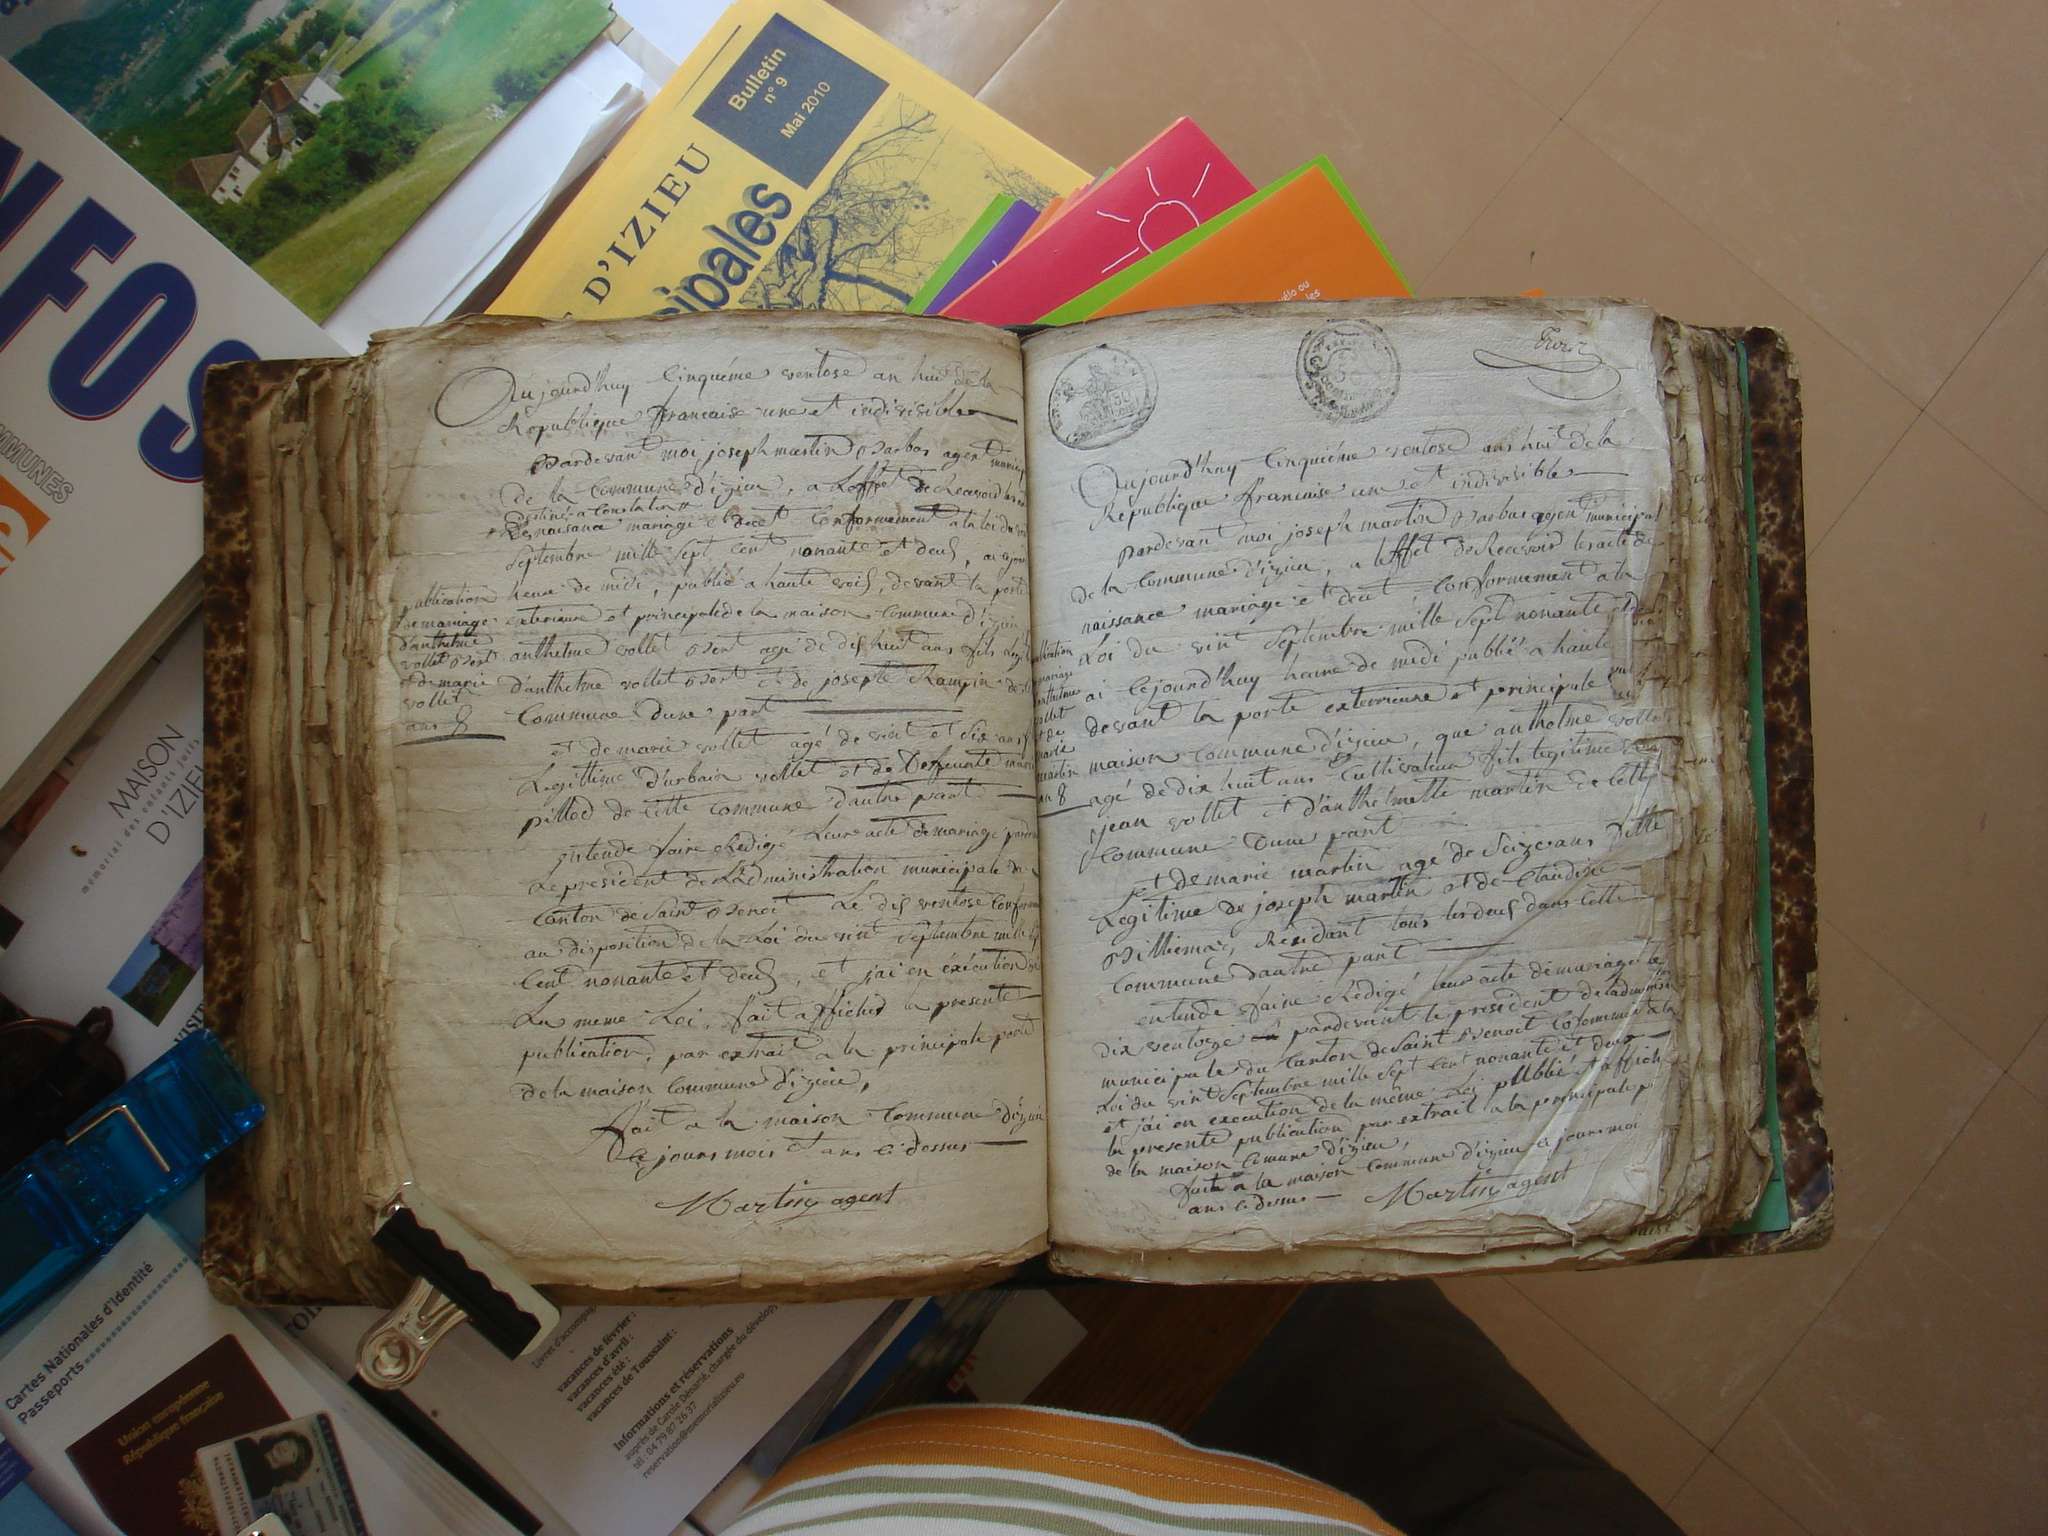 NFOS
MMUNES
Bulletin
n° 9
Mai 2010
D'IZIEU
cipales
vélo ou
les
MAISON
D'IZIEU
memorial des enfants juifs
Aujourd'huy Cinquiéme ventose an huit de la
Republique francaise une et indivisible
pardevant moi joseph martin Barbas agent municip
de la Commune d'izieu, a Leffet de Recevoir les
destinés a Constater
naisance mariage et decet Conformement a la loi du vin
Septembre mille Sept Cent nonante et deux, ai cejour
heure de midi, publié a haute voix, devant la porte
exterieure et principale de la maison Commune d'izieu
anthelme vollet agé de dix huit ans fils Legi
d'anthelme vollet et de josepte Rampin de
Commune dune part
publication
de mariage
d'anthelme
vollet
et de marie
vollet
ans 8
et de marie vollet agé de vint et Six ans
Legittime d'urbain vollet et de Deffeunte
pillod de Cette Commune dautre part
entende faire Redigé Leur acte de mariage parde
Le president de L'administration municipale de
Canton de Saint Benoit Le dix ventose Conform
au disposition de la Loi du vint Septembre mille Sep
Cent nonante et deux, et j'ai en éxécution de
La meme Loi, fait affiched la presente
publication, par extrait a la principale porte
de la maison Commune d'izieu,
fait a la maison Commune d'izieu
Ce jours mois et ans Ci dessus
Martin agent
Aujourd'huy Cinquiéme ventose ans huit de la
Republique francaise une et indivisible
pardevant moi joseph martin Barbas agent municipal
de la Commune d'izieu, a Leffet de Recevoir les acte de
naissance mariage et decet Conformement a la
Loi du vint Septembre mille Sept nonante et deux
ai Cejourd'huy heure de midi publié a haute
devant la porte exterrieure et principale
maison Commune d'izieu, que anthelme vollet
agé de dix huit ans Cultivateur fils legitime
jean vollet et d'anthelmette martin de Cette
Commune dune part
publication
mariage
anthelme
vollet
et de
marie
martin
an 8
et de marie martin agé de Seize ans fille
Legitime de joseph martin et de Claudine
Billiemaz, Residant tous les deux dans Cette
Commune dautre part
entende faire Redigé leur acte de mariage le
dix ventose pardevant le president de ladminis
municipale du Canton de Saint Benoit Conformé a la
Loi du vint Septembre mille Sept Cent nonante et deux
et j'ai en execution de la même Loi publié et affich
la presente publication par extrait a la principale p
de la maison Comune d'izieu,
fait a la maison Commune d'izieu Ce jours moi
ans Ci dessus Martin agent
Cartes Nationales d'Identité
Passeports
Union européenne
République française
Livret d'accompa
vacances de février :
vacances d'avril :
vacances été :
vacances de Toussaint :
Informations et réservations
auprès de Carole Désarté, chargée du dévelop
tél : 04 79 87 26 37
reservation@memorializieu.eu